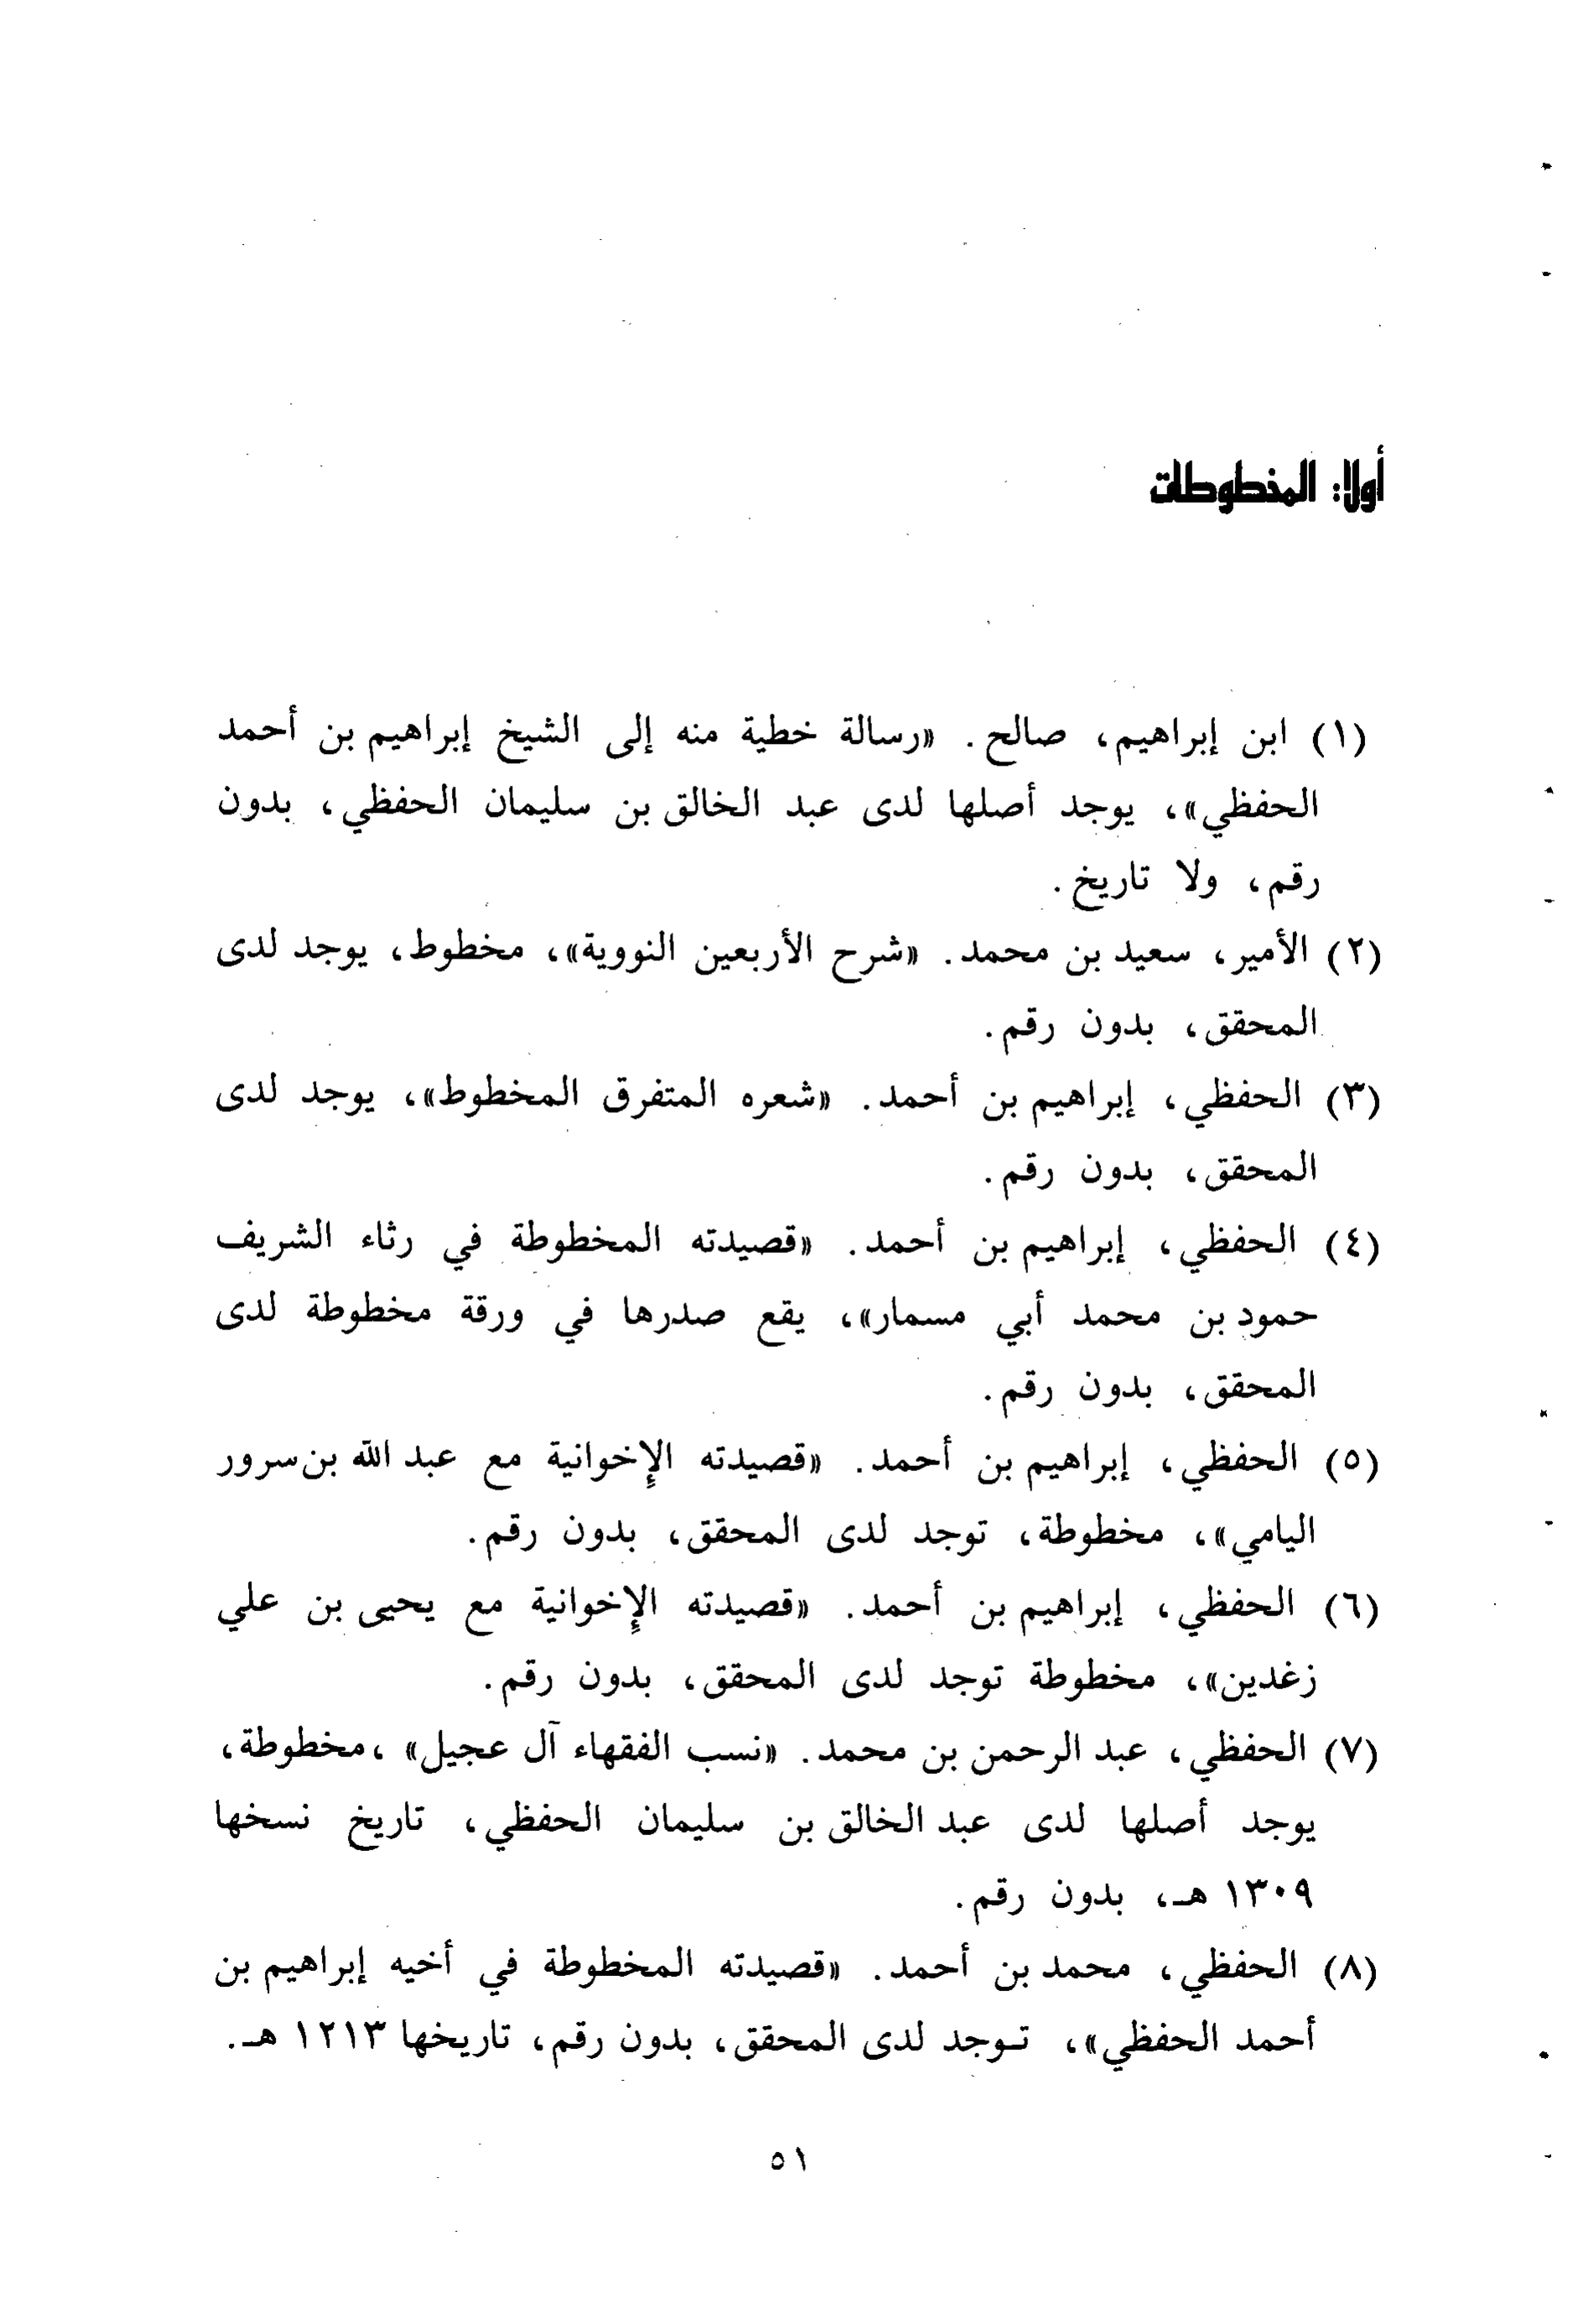 أولا: المخطوطات
(١) ابن إبراهيم، صالح. «رسالة خطية منه إلى الشيخ إبراهيم بن أحمد
الحفظي»، يوجد أصلها لدى عبد الخالق بن سليمان الحفظي، بدون
رقم، ولا تاريخ.
(٢) الأمير، سعيد بن محمد. «شرح الأربعين النووية»، مخطوط، يوجد لدى
المحقق، بدون رقم.
(٣) الحفظي، إبراهيم بن أحمد. «شعره المتفرق المخطوط»، يوجد لدى
المحقق، بدون رقم.
(٤) الحفظي، إبراهيم بن أحمد. «قصيدته المخطوطة في رثاء الشريف
حمود بن محمد أبي مسمار»، يقع صدرها في ورقة مخطوطة لدى
المحقق، بدون رقم.
(٥) الحفظي، إبراهيم بن أحمد. «قصيدته الإخوانية مع عبد الله بن سرور
اليامي»، مخطوطة، توجد لدى المحقق، بدون رقم.
(٦) الحفظي، إبراهيم بن أحمد. «قصيدته الإخوانية مع يحيى بن علي
زغدين»، مخطوطة توجد لدى المحقق، بدون رقم.
(٧) الحفظي، عبد الرحمن بن محمد. «نسب الفقهاء آل عجيل» ،مخطوطة،
يوجد أصلها لدى عبد الخالق بن سليمان الحفظي، تاريخ نسخها
١٣٠٩ هـ، بدون رقم.
(٨) الحفظي، محمد بن أحمد. «قصيدته المخطوطة في أخيه إبراهيم بن
أحمد الحفظي»، تـوجد لدى المحقق، بدون رقم، تاريخها ١٢١٣ هـ.
٥١